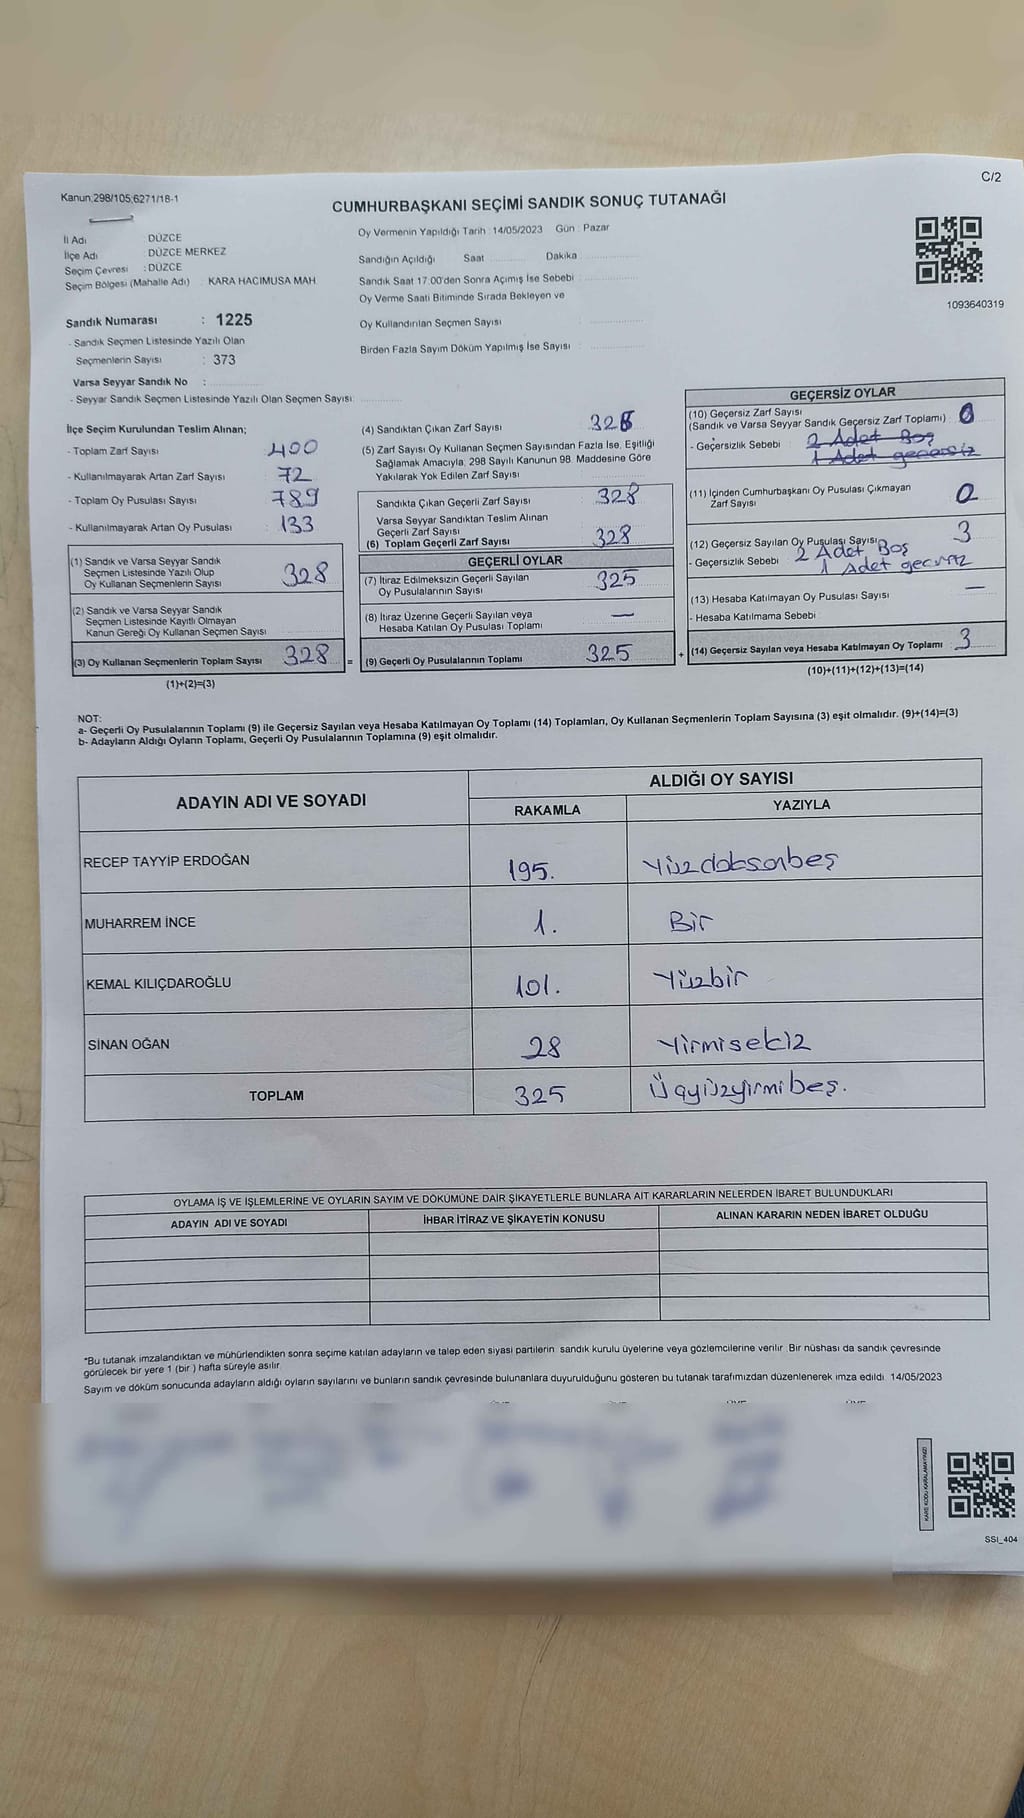 Kanun:298/105;6271/18-1
C/2
CUMHURBAŞKANI SEÇİMİ SANDIK SONUÇ TUTANAĞI
İl Adı DÜZCE
İlçe Adı DÜZCE MERKEZ
Seçim Çevresi : DÜZCE
Seçim Bölgesi (Mahalle Adı) : KARA HACIMUSA MAH
Sandık Numarası : 1225
- Sandık Seçmen Listesinde Yazılı Olan
Seçmenlerin Sayısı : 373
Varsa Seyyar Sandık No :
- Seyyar Sandık Seçmen Listesinde Yazılı Olan Seçmen Sayısı:
Oy Vermenin Yapıldığı Tarih : 14/05/2023 Gün : Pazar
Sandığın Açıldığı Saat Dakika
Sandık Saat 17:00'den Sonra Açımış İse Sebebi :
Oy Verme Saati Bitiminde Sırada Bekleyen ve
Oy Kullandırılan Seçmen Sayısı :
Birden Fazla Sayım Döküm Yapılmış İse Sayısı :
1093640319
İlçe Seçim Kurulundan Teslim Alınan;
- Toplam Zarf Sayısı : 400
- Kullanılmayarak Artan Zarf Sayısı : 72
- Toplam Oy Pusulası Sayısı : 789
- Kullanılmayarak Artan Oy Pusulası : 133
(1) Sandık ve Varsa Seyyar Sandık
Seçmen Listesinde Yazılı Olup
Oy Kullanan Seçmenlerin Sayısı 328
(2) Sandık ve Varsa Seyyar Sandık
Seçmen Listesinde Kayıtlı Olmayan
Kanun Gereği Oy Kullanan Seçmen Sayısı
(3) Oy Kullanan Seçmenlerin Toplam Sayısı 328 =
(1)+(2)=(3)
(4) Sandıktan Çıkan Zarf Sayısı 328
(5) Zarf Sayısı Oy Kullanan Seçmen Sayısından Fazla İse, Eşitliği
Sağlamak Amacıyla, 298 Sayılı Kanunun 98. Maddesine Göre
Yakılarak Yok Edilen Zarf Sayısı
Sandıkta Çıkan Geçerli Zarf Sayısı 328
Varsa Seyyar Sandıktan Teslim Alınan
Geçerli Zarf Sayısı
(6) Toplam Geçerli Zarf Sayısı 328
GEÇERLİ OYLAR
(7) İtiraz Edilmeksizin Geçerli Sayılan
Oy Pusulalarının Sayısı 325
(8) İtiraz Üzerine Geçerli Sayılan veya
Hesaba Katılan Oy Pusulası Toplamı —
(9) Geçerli Oy Pusulalarının Toplamı 325 +
GEÇERSİZ OYLAR
(10) Geçersiz Zarf Sayısı
(Sandık ve Varsa Seyyar Sandık Geçersiz Zarf Toplamı) : 0
- Geçersizlik Sebebi : 2 Adet Boş
1 Adet geçersiz
(11) İçinden Cumhurbaşkanı Oy Pusulası Çıkmayan
Zarf Sayısı 0
(12) Geçersiz Sayılan Oy Pusulası Sayısı 3
- Geçersizlik Sebebi 2 Adet Boş
1 Adet
(13) Hesaba Katılmayan Oy Pusulası Sayısı —
- Hesaba Katılmama Sebebi
(14) Geçersiz Sayılan veya Hesaba Katılmayan Oy Toplamı : 3
(10)+(11)+(12)+(13)=(14)
NOT:
a- Geçerli Oy Pusulalarının Toplamı (9) ile Geçersiz Sayılan veya Hesaba Katılmayan Oy Toplamı (14) Toplamları, Oy Kullanan Seçmenlerin Toplam Sayısına (3) eşit olmalıdır. (9)+(14)=(3)
b- Adayların Aldığı Oyların Toplamı, Geçerli Oy Pusulalarının Toplamına (9) eşit olmalıdır.
ADAYIN ADI VE SOYADI ALDIĞI OY SAYISI
RAKAMLA YAZIYLA
RECEP TAYYİP ERDOĞAN 195. Yüzdoksanbeş
MUHARREM İNCE 1. Bir
KEMAL KILIÇDAROĞLU 101. Yüzbir
SİNAN OĞAN 28 Yirmisekiz
TOPLAM 325 Üçyüzyirmibeş.
OYLAMA İŞ VE İŞLEMLERİNE VE OYLARIN SAYIM VE DÖKÜMÜNE DAİR ŞİKAYETLERLE BUNLARA AİT KARARLARIN NELERDEN İBARET BULUNDUKLARI
ADAYIN ADI VE SOYADI İHBAR İTİRAZ VE ŞİKAYETİN KONUSU ALINAN KARARIN NEDEN İBARET OLDUĞU
*Bu tutanak imzalandıktan ve mühürlendikten sonra seçime katılan adayların ve talep eden siyasi partilerin sandık kurulu üyelerine veya gözlemcilerine verilir. Bir nüshası da sandık çevresinde
görülecek bir yere 1 (bir ) hafta süreyle asılır.
Sayım ve döküm sonucunda adayların aldığı oyların sayılarını ve bunların sandık çevresinde bulunanlara duyurulduğunu gösteren bu tutanak tarafımızdan düzenlenerek imza edildi. 14/05/2023
KARE KODU KARALAMAYINIZ!
SSI_404